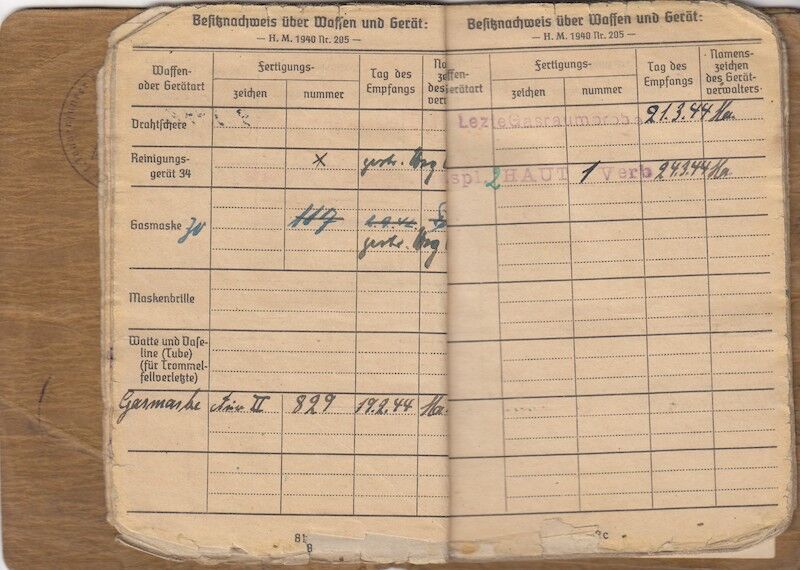 Besitznachweis über Waffen und Gerät:
— H. M. 1940 Nr. 205 —
Waffen-
oder Gerätart
Fertigungs-
zeichen
nummer
Tag des
Empfangs
Drahtschere
Reinigungs-
gerät 34
x
gestr.
Gasmaske
117
gestr.
Maskenbrille
Watte und Vase-
line (Tube)
(für Trommel-
fellverletzte)
Gasmaske
II
829
19.2.44
Ma.
81
B
Besitznachweis über Waffen und Gerät:
— H. M. 1940 Nr. 205 —
Fertigungs-
zeichen
nummer
Tag des
Empfangs
Namens-
zeichen
des Gerät-
verwalters
Lezte Gasraumprobe
21.3.44
Ma.
2 HAUT
1 Verb
24.3.44
Ma.